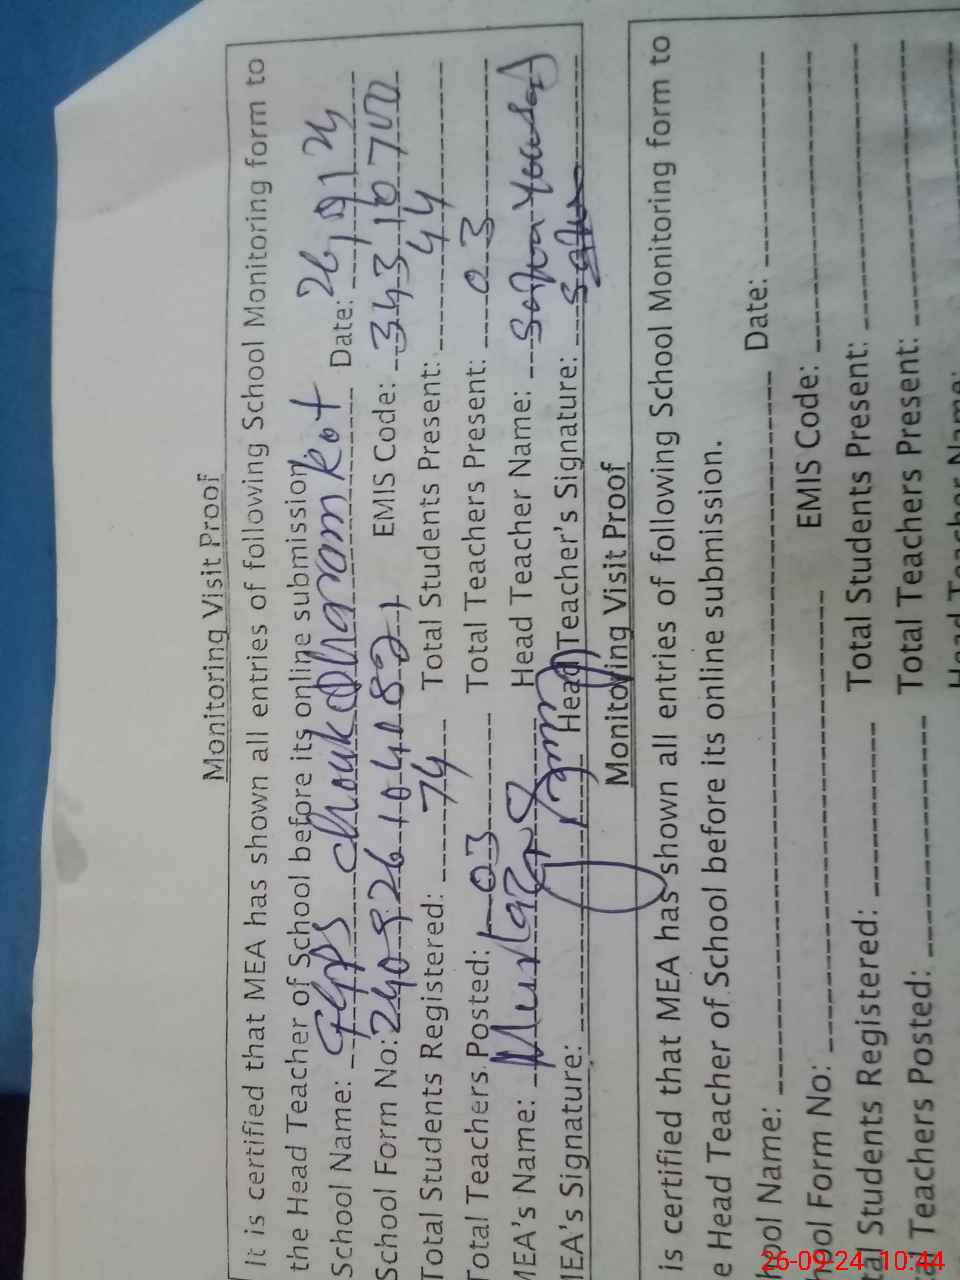 Monitoring Visit Proof
It is certified that MEA has shown all entries of following School Monitoring form to
the Head Teacher of School before its online submission.
School Name: GGPS chowk Dharamkot Date: 26/9/24
School Form No: 240926104082 EMIS Code: 34310700
Total Students Registered: 74 Total Students Present: 44
Total Teachers Posted: 03 Total Teachers Present: 03
MEA's Name: Head Teacher Name:
MEA's Signature: Head Teacher's Signature:
Monitoring Visit Proof
is certified that MEA has shown all entries of following School Monitoring form to
e Head Teacher of School before its online submission.
hool Name: Date:
hool Form No: EMIS Code:
al Students Registered: Total Students Present:
Teachers Posted: Total Teachers Present:
Head Teacher Name:
26-09-24 10:44